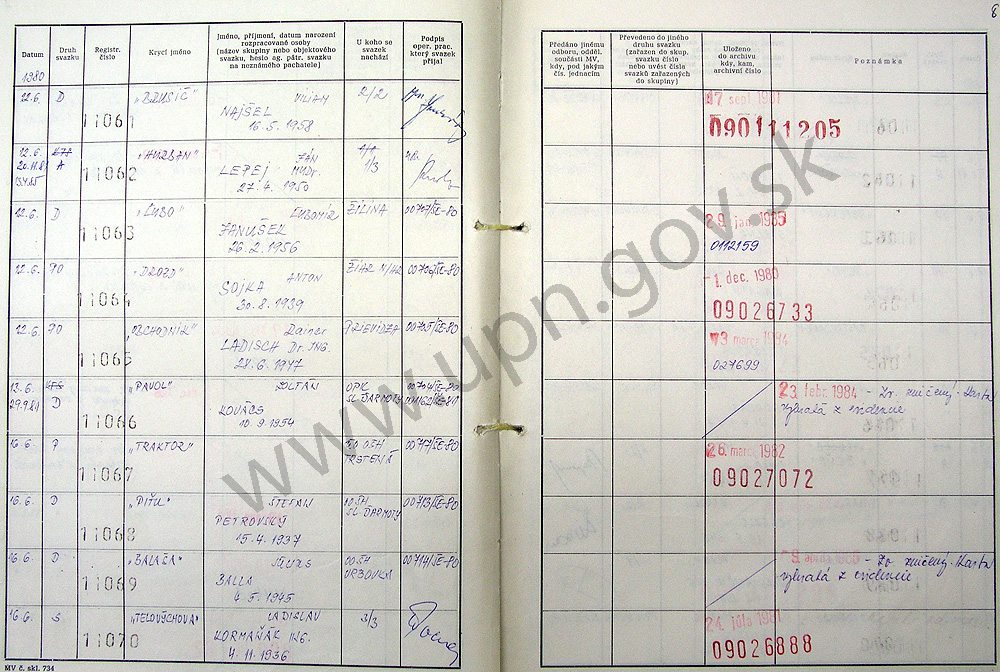 Datum
Druh svazku
Registr. číslo
Krycí jméno
Jméno, příjmení, datum narození rozpracované osoby (název skupiny nebo objektového svazku, heslo ag. pátr. svazku na neznámého pachatele)
U koho se svazek nachází
Podpis oper. prac. který svazek přijal
Předáno jinému odboru, odděl. součásti MV, kdy, pod jakým čís. jednacím
Převedeno do jiného druhu svazku (zařazen do skup. svazku číslo nebo uvést čísla svazků zařazených do skupiny)
Uloženo do archivu kdy, kam, archivní číslo
Poznámka
8
1980
12.6. D 11061 VILIAM 2/2
NAJŠEL
16.5.1958
17 sept 1981
090111205
12.6. A 11062 "HURBAN" JÁN 1/3
LEPEJ MUDr.
27.4.1950
12.6. D 11063 "ĽUBO" Ľubomír ŽILINA 00707/ŠE-80
JANUŠEK
26.2.1956
29. jan. 1985
0112159
12.6. 90 11064 "DROZD" ANTON ŽIAR N/HR 00706/ŠE-80
SOJKA
30.8.1939
-1. dec. 1980
09026733
12.6. 90 11065 "OBCHODNÍK" Rainer PRIEVIDZA 00705/ŠE-80
LADISCH Dr. ING.
28.6.1947
027699
13.6. 29.9.81 D 11066 "PAVOL" ZOLTÁN
KOVÁCS
10.9.1954
23. febr. 1984 - Zv. zničený. Karta
vyňatá z evidencie
16.6. P 11067 "TRAKTOR" OO OŠH TRSTENÁ 00717/ŠE-80
26. marc 1982
09027072
16.6. D 11068 ŠTEFAN 00713/ŠE-80
PETROVSKÝ
15.4.1937
16.6. D 11069 "BALAŠA" JÚLIUS 00714/ŠE-80
BALLA
4.5.1945
Zv. zničený. Karta
vyňatá z evidencie
16.6. S 11070 "TELOVÝCHOVA" LADISLAV 3/3
KORMAŇÁK ING.
4.11.1936
24. júla 1981
09026888
MV č. skl. 734
www.upn.gov.sk